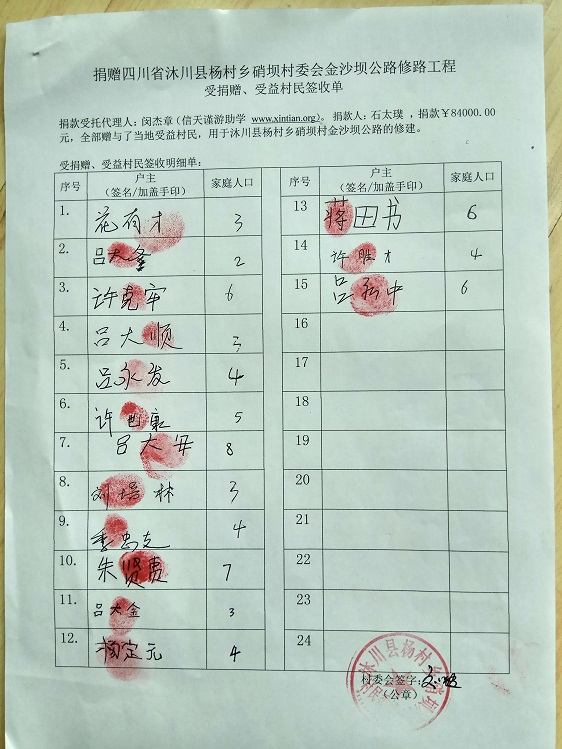 捐赠四川省沐川县杨村乡硝坝村委会金沙坝公路修路工程
受捐赠、受益村民签收单
捐款受托代理人：闵杰章（信天谨游助学 www.xintian.org）。捐款人：石太璞，捐款￥84000.00
元，全部赠与了当地受益村民，用于沐川县杨村乡硝坝村金沙坝公路的修建。
受捐赠、受益村民签收明细单：
序号 户主（签名/加盖手印） 家庭人口
1. 花有才 3
2. 吕大金 2
3. 许克牢 6
4. 吕大顺 3
5. 吕永发 4
6. 许 5
7. 吕大安 8
8. 刘培林 3
9. 季忠 4
10. 朱贤贵 7
11. 吕大金 3
12. 杨定元 4
序号 户主（签名/加盖手印） 家庭人口
13 蒋田书 6
14 许胜才 4
15 吕中 6
16
17
18
19
20
21
22
23
24
沐川县杨村乡硝坝
村委会签字：
（公章）